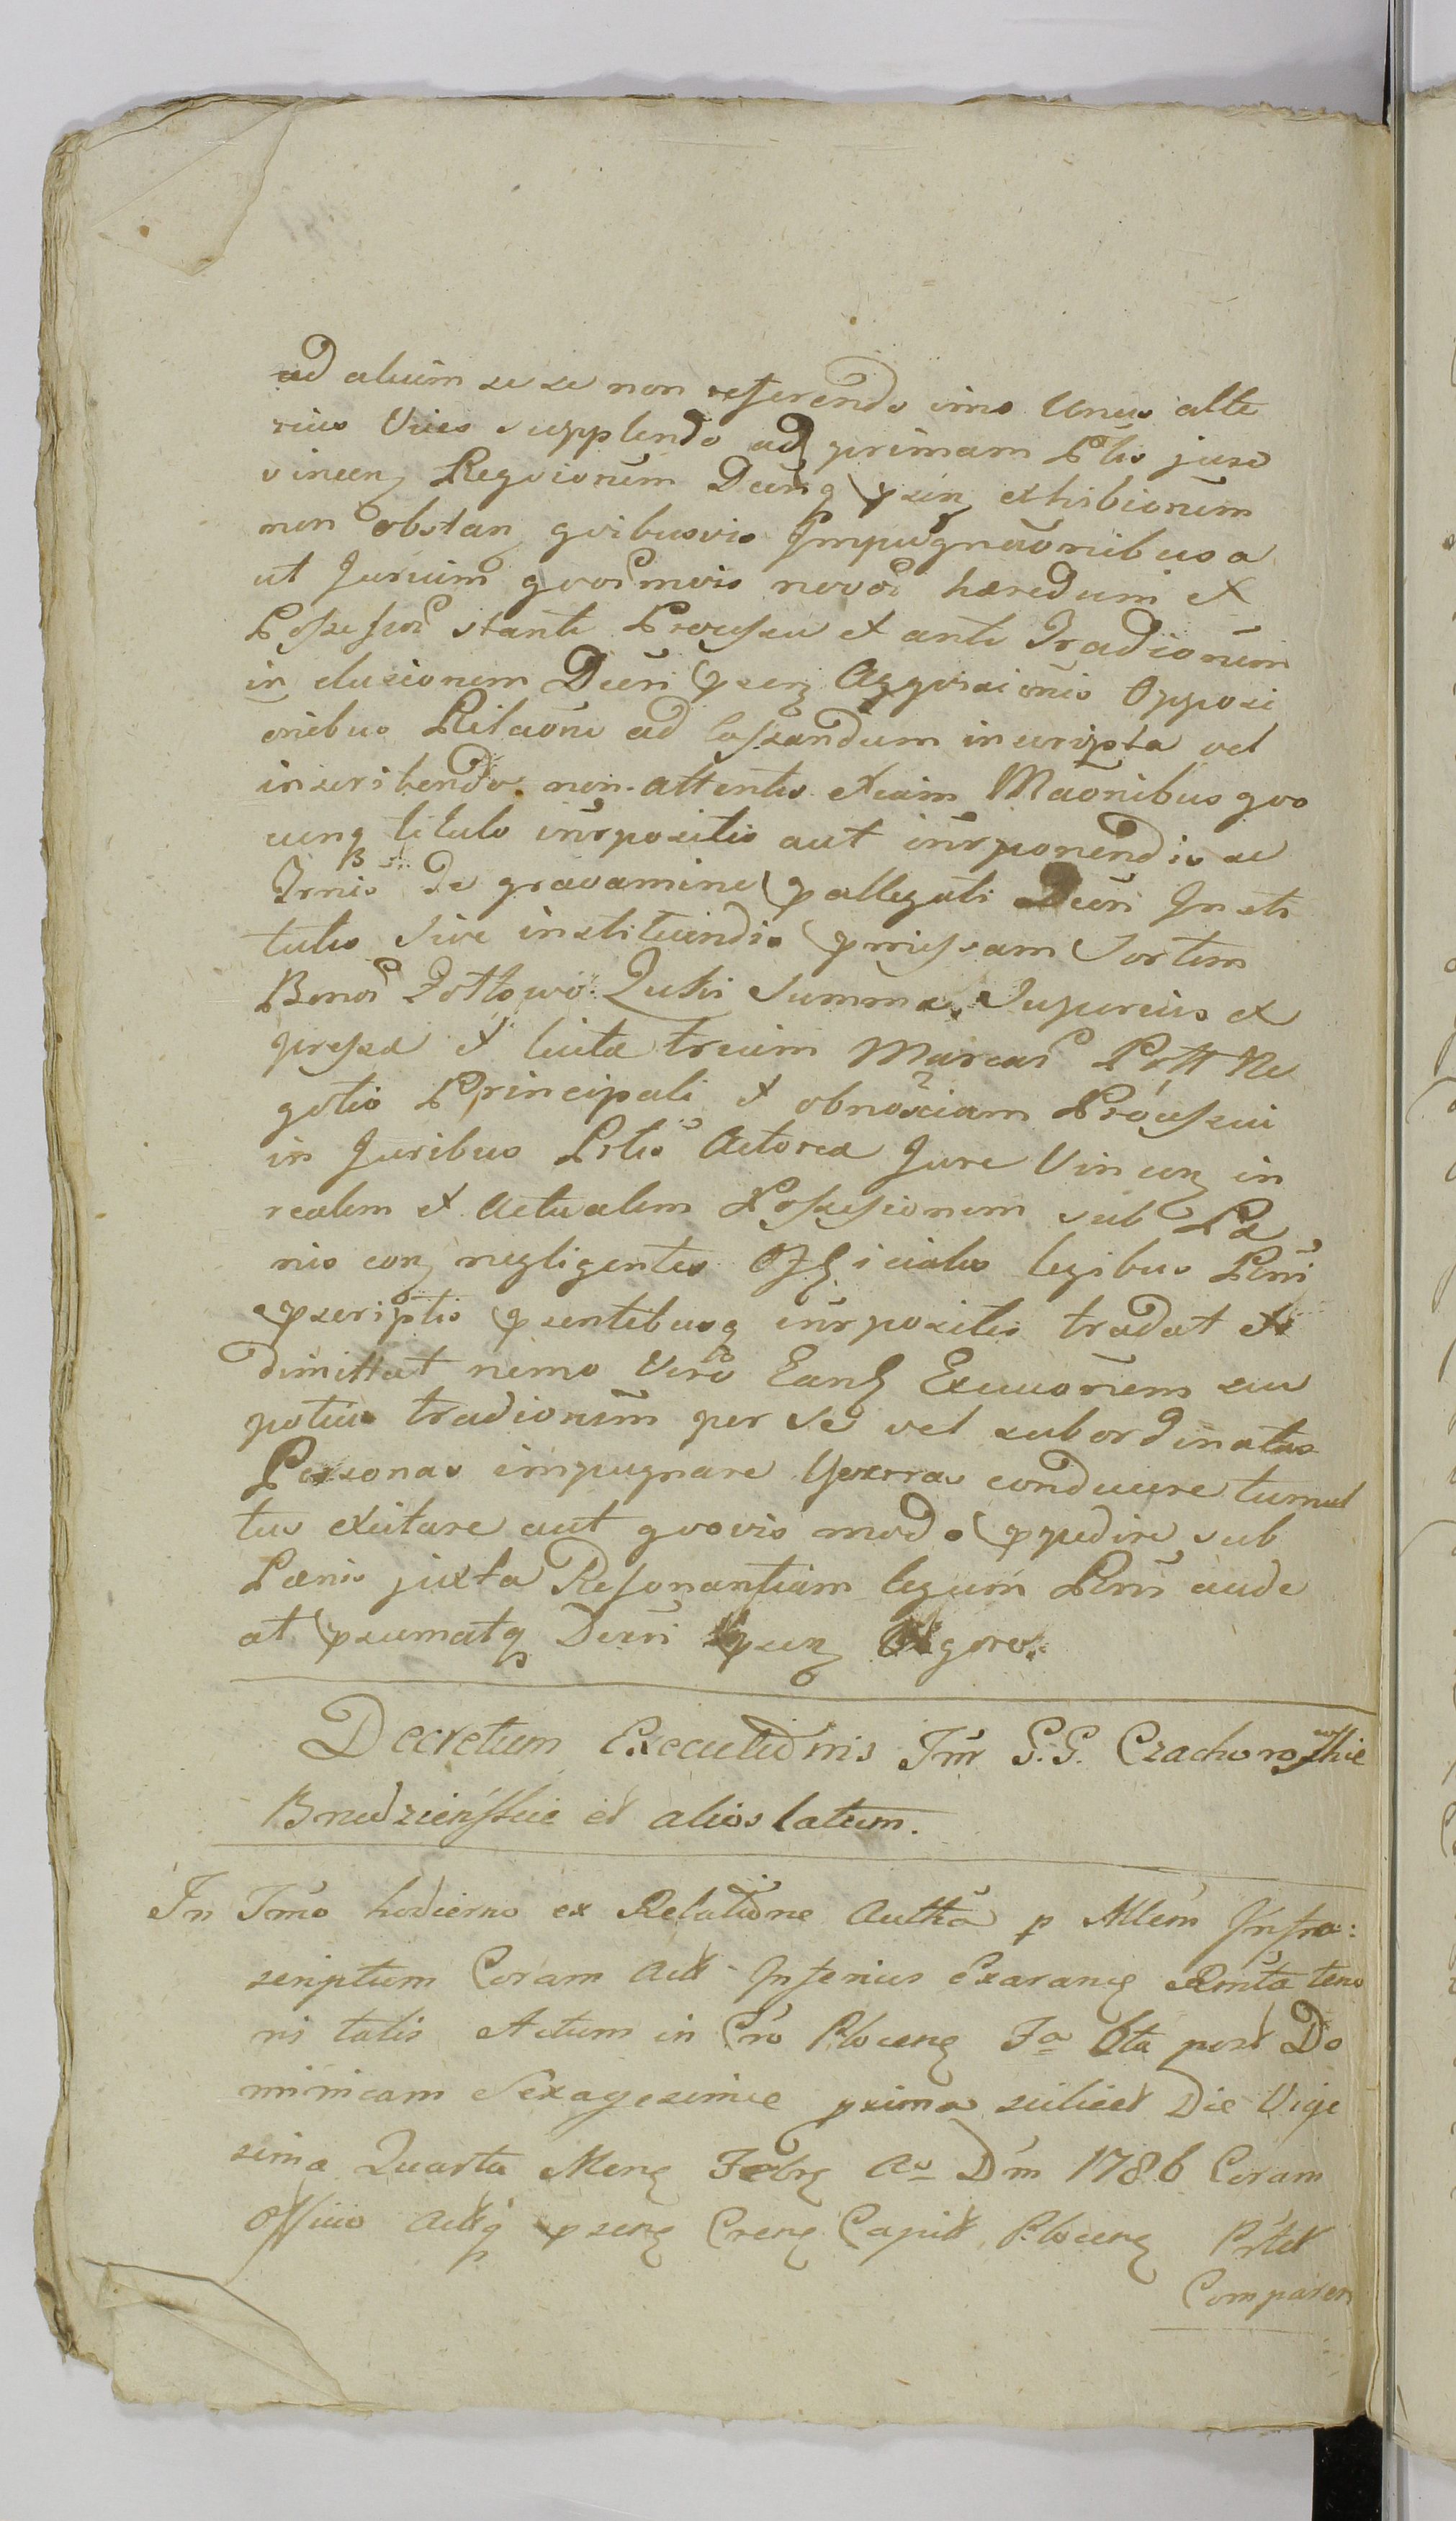 ad alium se se non referendo imo Unus alte
rius Vices supplendo ad primam Ptis jure
vincen Reqvionem Decriq psen exhibionem
non obstan qvibusvis Impugnaonibus a
ut Jurium qvormvis novor hæredum et
Possessor stante Processu et ante Tradionem
in elusionem Decri psen Aqqvisionis Opposi
onibus Relaone ad Cassandum inscripta vel
inscribendo non attentis etiam Maonibus qvo
cunq titulo inrpositis aut inrponendis ac
Trnis de gravamine pallegati Decri Insti
tutis sive instituendis pmissam Sortem
Bonor Zotłowo Zutki Summæ Superius ex
pressæ et luitæ trium Marcar Ptt Ne
gotio Principali et obnoxiam Processui
in Juribus Prtis Actoreæ Jure Vincen in
realem et Actualem Possessionem sub Pæ
nis con negligentes Officiales legibus Rni
pscriptis psentibusq inrpositis tradat et
dimittat nemo Vero Eand Execuonem seu
potius tradionem per se vel subordinatas
Personas impugnare Gverras conducere tumul
tus excitare aut qvovis modo ppedire sub
Pænis juxta Resonantiam legum Rni aude
at psumatq Decri psen Vigore.
Decretum Executionis Inr G.G. Czachorowskie
Brudzieńskie et alios latum.
In Tmo hodierno ex Relatione Autha p Mlem Infra:
scriptum Coram Act Inferius Exaran Rmta teno
ris talis Actum in Cro Plocen Fa 6ta post Do
minicam Sexagesimæ pxima scilicet Die Vige
sima Quarta Men Febr Ao Dni 1786 Coram
Officio Actq psen Cren Capit Plocen Prlt
Comparen